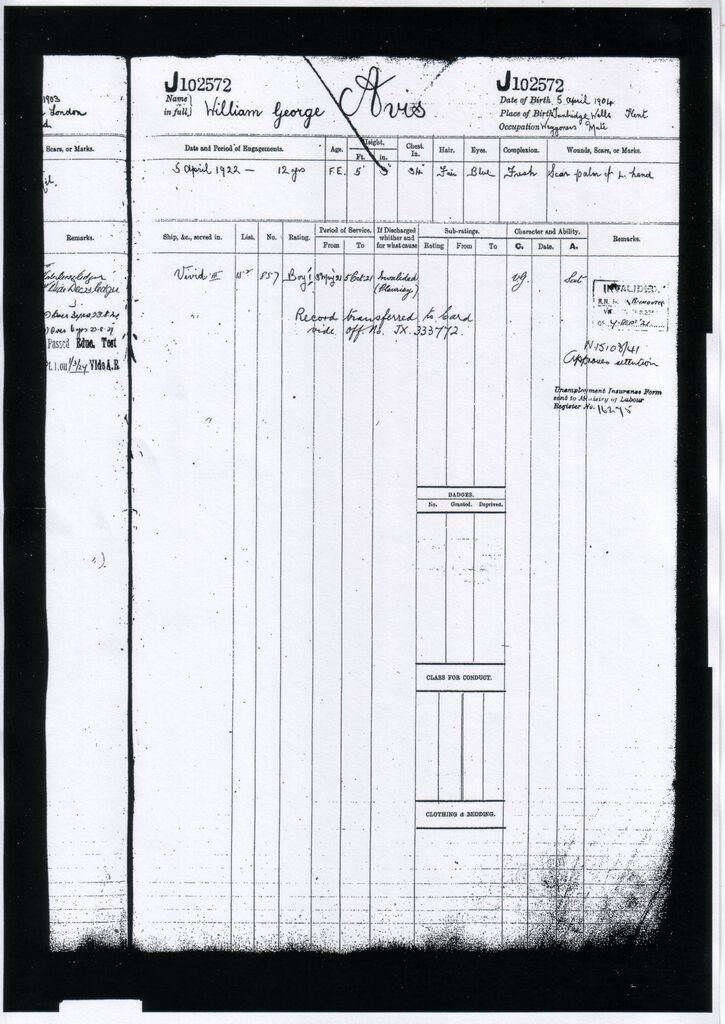 1903
London
Scars, or Marks.
Remarks.
Passed Educ. Test
Pt. 1. on 1/3/24 Vide A.F.
J102572
J102572
Name in full } William George Avis
Date of Birth 5 April 1904
Place of Birth Tunbridge Wells Kent
Occupation Waggoners Mate
Date and Period of Engagements. Age. Height. Ft. in. Chest. In. Hair. Eyes. Complexion. Wounds, Scars, or Marks.
5 April 1922 — 12 yrs F.E. 5' 3" 34 Fair Blue Fresh Scar palm of L. hand
Ship, &c., served in. List. No. Rating. Period of Service. From To If Discharged whether and for what cause Sub-ratings. Rating From To Character and Ability. C. Date. A. Remarks.
Vivid III 15 857 Boy II 5 Oct 21 Invalided (Pleurisy) VG. Sat
INVALIDED.
Record transferred to Card
vide off No. JX. 333772.
N 15108/41
Approves retention
Unemployment Insurance Form
sent to Ministry of Labour
Register No. 16275
BADGES.
No. Granted. Deprived.
CLASS FOR CONDUCT.
CLOTHING & BEDDING.